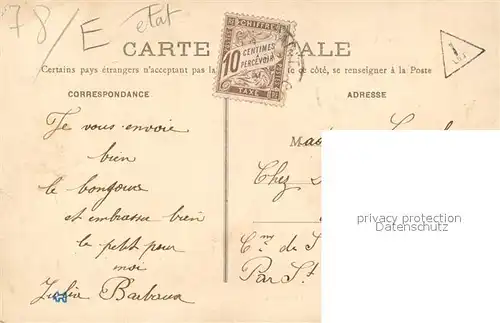 78/E état
CARTE POSTALE
Certains pays étrangers n'acceptant pas la ce côté, se renseigner à la Poste
CHIFFRE
10 CENTIMES À PERCEVOIR
TAXE
CORRESPONDANCE
ADRESSE
Je vous envoie
bien
le bonjour
et embrasse bien
le petit pour
moi
Barbaux
Ma
Chez
Cne de S
Par St
privacy protection
Datenschutz